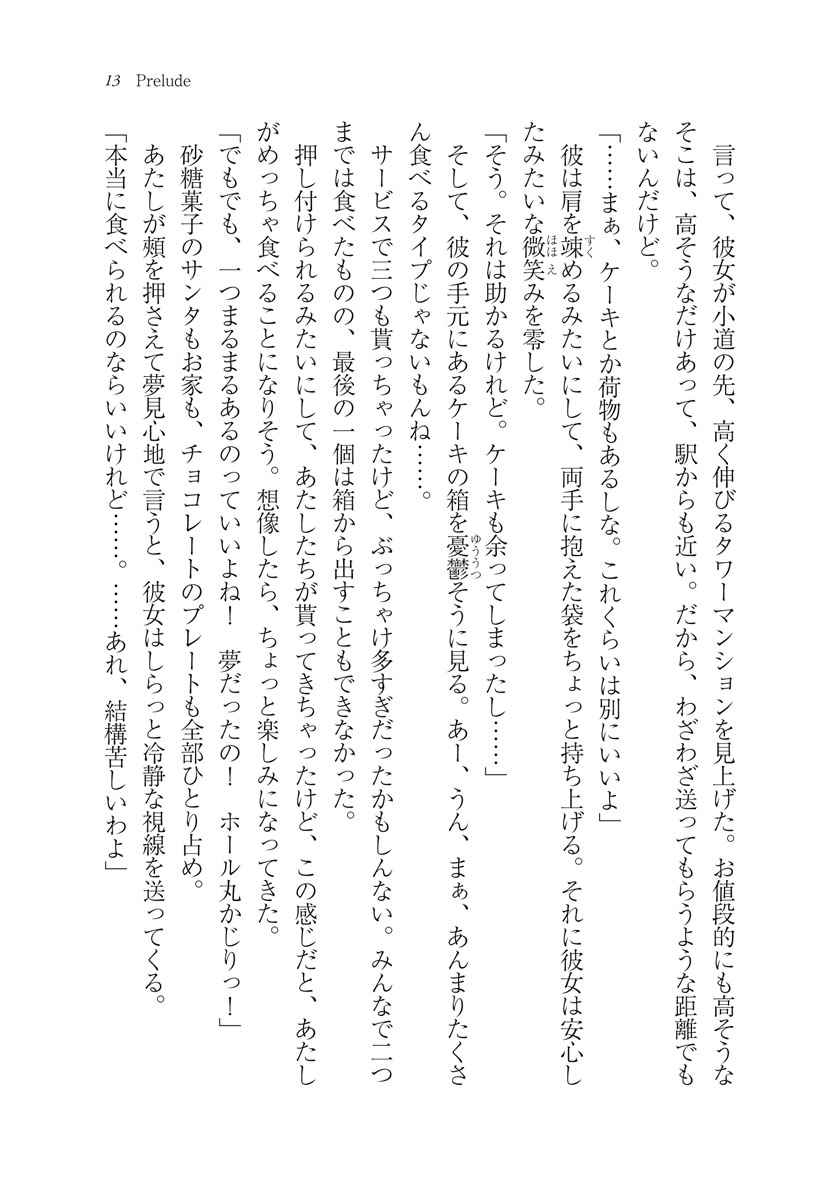 13 Prelude
　言って、彼女が小道の先、高く伸びるタワーマンションを見上げた。お値段的にも高そうな
そこは、高そうなだけあって、駅からも近い。だから、わざわざ送ってもらうような距離でも
ないんだけど。
「……まぁ、ケーキとか荷物もあるしな。これくらいは別にいいよ」
　彼は肩を竦めるみたいにして、両手に抱えた袋をちょっと持ち上げる。それに彼女は安心し
たみたいな微笑みを零した。
「そう。それは助かるけれど。ケーキも余ってしまったし……」
　そして、彼の手元にあるケーキの箱を憂鬱そうに見る。あー、うん、まぁ、あんまりたくさ
ん食べるタイプじゃないもんね……。
　サービスで三つも貰っちゃったけど、ぶっちゃけ多すぎだったかもしんない。みんなで二つ
までは食べたものの、最後の一個は箱から出すこともできなかった。
　押し付けられるみたいにして、あたしたちが貰ってきちゃったけど、この感じだと、あたし
がめっちゃ食べることになりそう。想像したら、ちょっと楽しみになってきた。
「でもでも、一つまるまるあるのっていいよね！　夢だったの！　ホール丸かじりっ！」
　砂糖菓子のサンタもお家も、チョコレートのプレートも全部ひとり占め。
　あたしが頬を押さえて夢見心地で言うと、彼女はしらっと冷静な視線を送ってくる。
「本当に食べられるのならいいけれど……。……あれ、結構苦しいわよ」